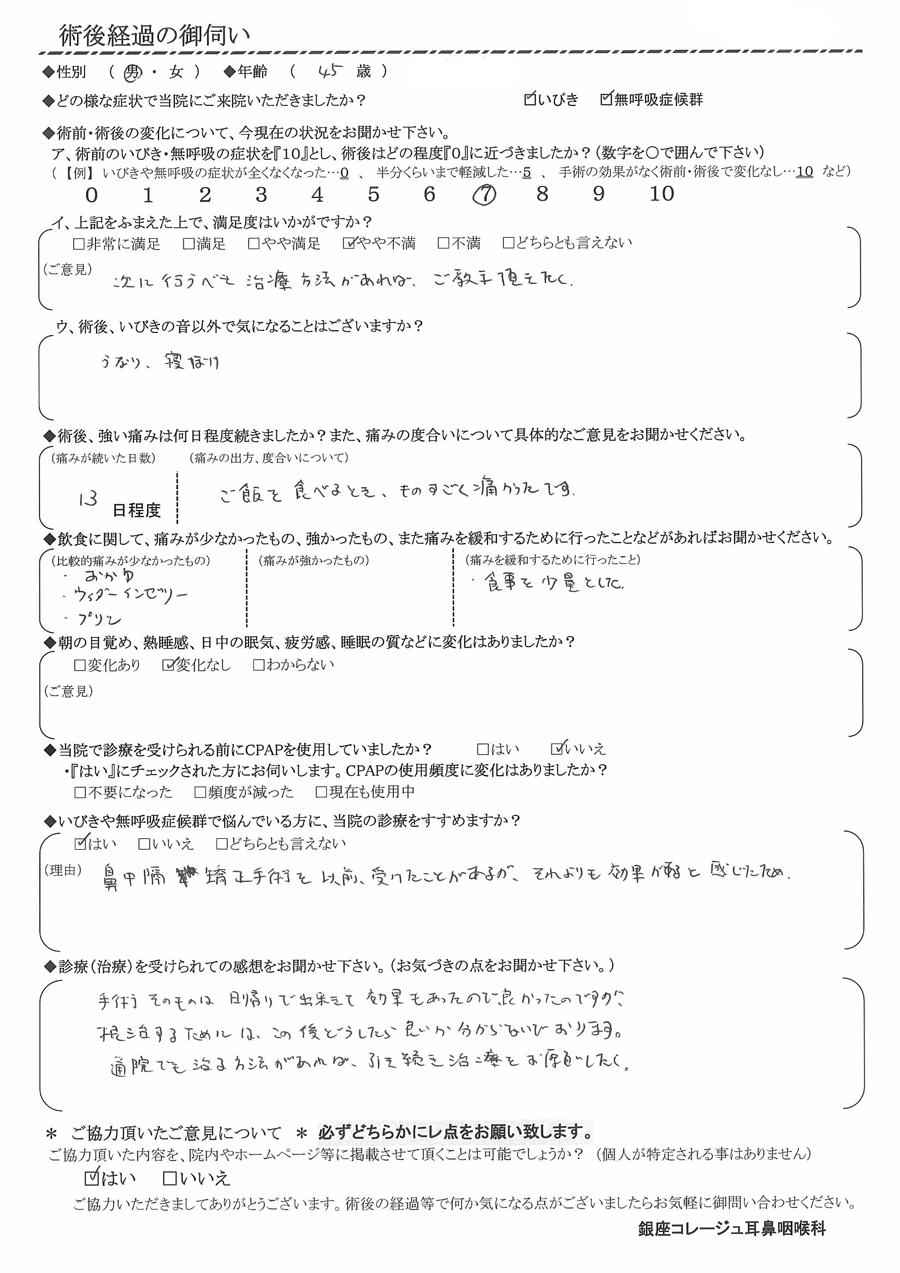 術後経過の御伺い
◆性別　（ 男 ・ 女 ）　◆年齢　（　45　歳 ）
◆どの様な症状で当院にご来院いただきましたか？　☑いびき　☑無呼吸症候群
◆術前・術後の変化について、今現在の状況をお聞かせ下さい。
ア、術前のいびき・無呼吸の症状を『10』とし、術後はどの程度『0』に近づきましたか？（数字を〇で囲んで下さい）
（【例】 いびきや無呼吸の症状が全くなくなった…0　、 半分くらいまで軽減した…5　、 手術の効果がなく術前・術後で変化なし…10　など）
0　1　2　3　4　5　6　⑦　8　9　10
イ、上記をふまえた上で、満足度はいかがですか？
□非常に満足　□満足　□やや満足　☑やや不満　□不満　□どちらとも言えない
（ご意見）　次に行うべき治療方法があれば、ご教示頂きたく.
ウ、術後、いびきの音以外で気になることはございますか？
うなり、寝ぼけ
◆術後、強い痛みは何日程度続きましたか？また、痛みの度合いについて具体的なご意見をお聞かせください。
（痛みが続いた日数）　（痛みの出方、度合いについて）
13 日程度　ご飯を食べるとき、ものすごく痛かったです.
◆飲食に関して、痛みが少なかったもの、強かったもの、また痛みを緩和するために行ったことなどがあればお聞かせください。
（比較的痛みが少なかったもの）　（痛みが強かったもの）　（痛みを緩和するために行ったこと）
・おかゆ　・食事を少量とした.
・ウィダーインゼリー
・プリン
◆朝の目覚め、熟睡感、日中の眠気、疲労感、睡眠の質などに変化はありましたか？
□変化あり　☑変化なし　□わからない
（ご意見）
◆当院で診療を受けられる前にCPAPを使用していましたか？　□はい　☑いいえ
・『はい』にチェックされた方にお伺いします。CPAPの使用頻度に変化はありましたか？
□不要になった　□頻度が減った　□現在も使用中
◆いびきや無呼吸症候群で悩んでいる方に、当院の診療をすすめますか？
☑はい　□いいえ　□どちらとも言えない
（理由）　鼻中隔矯正手術を以前、受けたことがあるが、それよりも効果が有ると感じたため.
◆診療（治療）を受けられての感想をお聞かせ下さい。（お気づきの点をお聞かせ下さい。）
手術そのものは日帰りで出来きて効果もあったので良かったのですが、
根治するためには、この後どうしたら良いか分からないでおります。
通院でも治る方法があれば、引き続き治療をお願いしたく.
＊　ご協力頂いたご意見について　＊ 必ずどちらかにレ点をお願い致します。
ご協力頂いた内容を、院内やホームページ等に掲載させて頂くことは可能でしょうか？（個人が特定される事はありません）
☑はい　□いいえ
ご協力いただきましてありがとうございます。術後の経過等で何か気になる点がございましたらお気軽に御問い合わせください。
銀座コレージュ耳鼻咽喉科